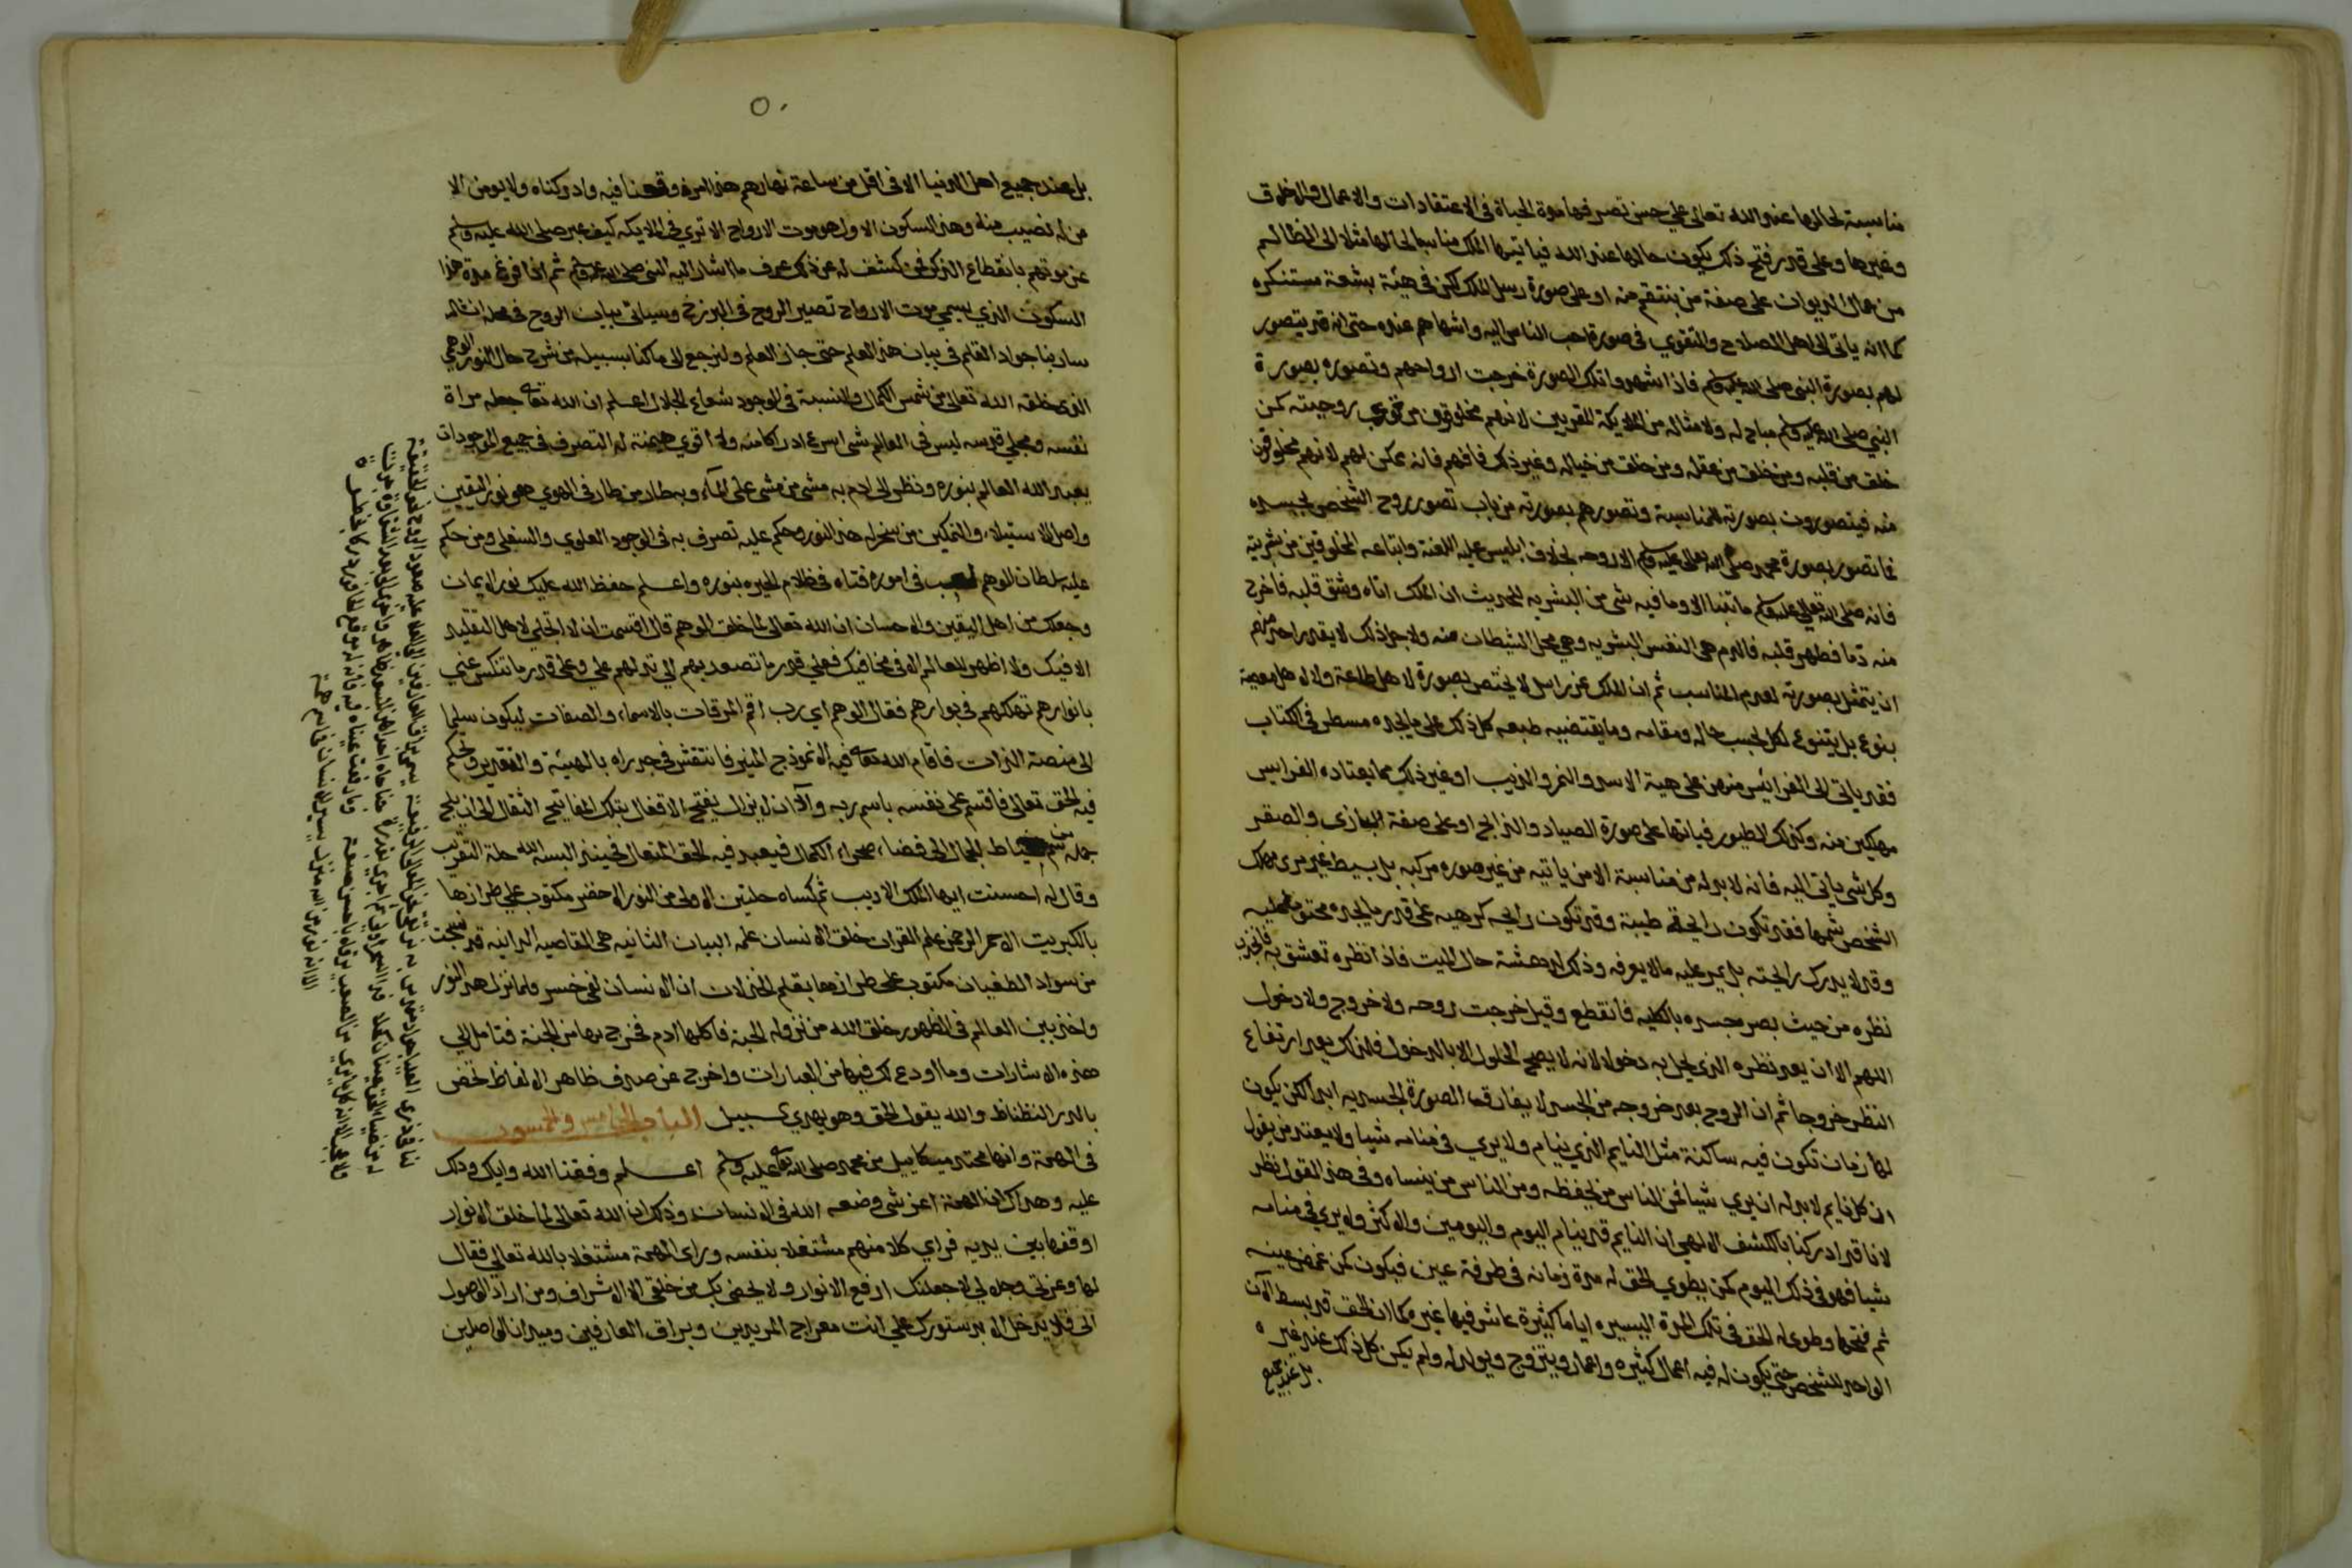 مناسبة لحالها عند الله تعالى على حسن تصرفها مدة الحياة في الاعتقادات والاعمال والاخلاق
وغيرها وعلى قدر قبح ذلك يكون حالها عند الله فياتيها الملك مناسبا لحالها مثلا الى الظالم
من عمال الديوان على صفة من ينتقم منه او على صورة رسل الملك لكن في هيئة بشعة مستنكره
كما انه ياتي الى اهل الصلاح والتقوي في صورة احب الناس اليه واشهاهم عنده حتى انه قد يتصور
لهم بصورة النبي صلى الله عليه وسلم فاذا اشهدوا تلك الصورة خرجت ارواحهم وتصوره بصورة
النبي صلى الله عليه وسلم مباح له ولامثاله من الملايكة المقربين لانهم مخلوقون من قوي روحيته كمن
خلق من قلبه ومن خلق من عقله ومن خلق من خياله وغير ذلك فافهم فانه يمكن لهم لانهم مخلوقون
منه فيتصورون بصورته للمناسبة وتصورهم بصورته من باب تصور روح الشخص بجسده
فما تصور بصورة محمد صلى الله تعالى عليه وسلم الا روحه بخلاف ابليس عليه اللعنة واتباعه المخلوقين من بشريته
فانه صلى الله تعالى عليه وسلم ما تنبا الا وما فيه شي من البشريه للحديث ان الملك اتاه وشق قلبه فاخرج
منه دما فطهر قلبه فالدم هي النفس البشريه وهي محل الشيطان منه ولاجل ذلك لا يقدر احد منهم
ان يتمثل بصورته لعدم المناسب ثم ان الملك عزراييل لا يختص بصورة لاهل طاعة ولا لاهل معصية
بنوع بل يتنوع لكل بحسب حاله ومقامه وما يقتضيه طبعه كل ذلك على ما يجده مسطر في الكتاب
فقد ياتي الى الفرائس منهن على هية الاسد والنمر والذيب او غير ذلك مما يعتاده الفرايس
مهلكين منه وكذلك الطيور فياتيها على صورة الصياد والذابح او على صفة البازي والصقر
وكل شي ياتي اليه فانه لا بد له من مناسبة الا من ياتيه من غير صوره مركبه بل بسيط غير مرى مهلك
الشخص شمها فقد تكون رايحة طيبة وقد تكون رايحه كريهه على قدر ما يجده
وقد لا يدرك رايحته بل يمر عليه ما لا يعرفه وذلك لدهشة حال الميت فاذا نظره تعشق به فانجذب
نظره من حيث بصر مجسده بالكليه فانقطع وقيل خرجت روحه ولا خروج ولا دخول
اللهم الا ان يعد نظره الذي يحل به دخولا لانه لا يصح الحلول الا بالدخول فلذلك يعد ارتفاع
النظر خروجا ثم ان الروح بعد خروجه من الجسد لا يفارق الصورة الجسديه ابدا لكن يكون
لها زمان تكون فيه ساكنة مثل النايم الذي ينام ولا يري في منامه شيا ولا يعتد من يقول
ان كل نايم لا بد له ان يري شيا فمن الناس من يحفظه ومن الناس من ينساه وفي هذا القول نظر
لانا قد ادركنا بالكشف الالهي ان النايم قد ينام اليوم واليومين والاكثر ولا يري في منامه
شيا فهو في ذلك اليوم كمن يطوي الحق له مدة زمانه في طرفة عين فيكون كمن غمض عينيه
ثم فتحها وطوى له الحق في تلك المدة اليسيره اياما كثيرة عاش فيها غيره كما ان الحق قد يبسط الآن
الواحد للشخص حتى يكون له فيه اعمال كثيره واعمار ويتزوج ويولد له ولم يكن كل ذلك عند غيره
بل عند جميع
٥٠
بل عند جميع اهل الدنيا الا في اقل من ساعة نهارهم هذا امر وقعنا فيه وادركناه ولا يومن الا
من له نصيب منه وهذا السكون الاول هو موت الارواح الا تري في الملايكه كيف عبر صلى الله عليه وسلم
عن موتهم بانقطاع الذكر فمن كشف له عن ذلك عرف ما اشار اليه النبي صلى الله عليه وسلم ثم اذا فرغ مدة هذا
السكون الذي يسمي موت الارواح تصير الروح في البرزخ وسياتي بيان الروح في محله ان شاء الله
سار بنا جواد القلم في بيان هذا العلم حتى جاز العلم ولنرجع الى ما كنا بسبيله من شرح حال النور الوهمي
الذي خلقه الله تعالى من شمس الكمال وللنسبة في الوجود شعاع الجلال اعلم ان الله تعالى جعله مراة
نفسه ومجلي قدسه ليس في العالم شي اسرع ادراكا منه ولا اقوي هيمنة له التصرف في جميع الموجودات
يعبد الله العالم بنوره ونظر الى ادم به مشى من مشى على المآء وبه طار من طار في الهوي هو نور اليقين
واصل الاستيلاء والتمكين من سخر له هذا النور وحكم عليه تصرف به في الوجود العلوي والسفلي ومن حكم
عليه سلطان الوهم لعب في اموره فتاه في ظلام الحيره بنوره واعلم حفظ الله عليك نور الايمان
وجعلك من اهل اليقين والاحسان ان الله تعالى لما خلق الوهم قال اقسمت ان لا اتجلي لاهل التقليد
الا فيك ولا اظهر للعالم الا في مخافيك فعلي قدر ما تصعد بهم الي تدلهم علي وعلى قدر ما تنكس عني
بانوارهم تهلكهم في بوارهم فقال الوهم اي رب اقم المرقات بالاسماء والصفات ليكون سلما
الى منصة الذات فاقام الله تعالى فيه الانموذج المنير فانتقش في جدراه بالهيئة والتقدير وتحكم
فيه الحق تعالى فاقسم على نفسه باسم ربه وآلا ان لا يزال يفتح الاقفال بتلك المفاتيح الثقال الى ان يلج
جمله سم خياط الجمال الى فضاء صحراء الكمال فيعبد فيه الحق المتعال فحينئذ البسه الله حلة التقريب
وقال له احسنت ايها الملك الاديب ثم كساه حلتين الاولى من النور الاخضر مكتوب على طرازها
بالكبريت الاحمر الرحمن علم القران خلق الانسان علمه البيان الثانيه هي القاصيه الدانيه قد نسجت
من سواد الطغيان مكتوب على طرازها بقلم الخذلان ان الانسان لفي خسر ولما نزل هذا النور
واخذ بين العالم في الظهور خلق الله من نزوله الحبة فاكلها ادم فخرج بها من الجنة فتامل الي
هذه الاشارات وما اودع لك فيها من العبارات واخرج عن صدف ظاهر الالفاظ تحض
بالدر النظناظ والله يقول الحق وهو يهدي السبيل الباب الخامس والخمسون
في الهمة وانها محتد ميكاييل من محمد صلى الله تعالى عليه وسلم اعلم وفقنا الله واياك ودلك
عليه وهداك ان الهمة اعز شي وضعه الله في الانسان وذلك ان الله تعالى لما خلق الانوار
اوقفها بين يديه فراي كلا منهم مشتغلا بنفسه وراى الهمة مشتغلا بالله تعالى فقال
لها وعزتي وجلالي لاجعلنك ارفع الانوار ولا يحضى بك من خلقي الا الاشراف ومن اراد الوصول
الى فلا يدخل الا بدستورك علي انت معراج المريدين وبراق العارفين وميدان الواصلين